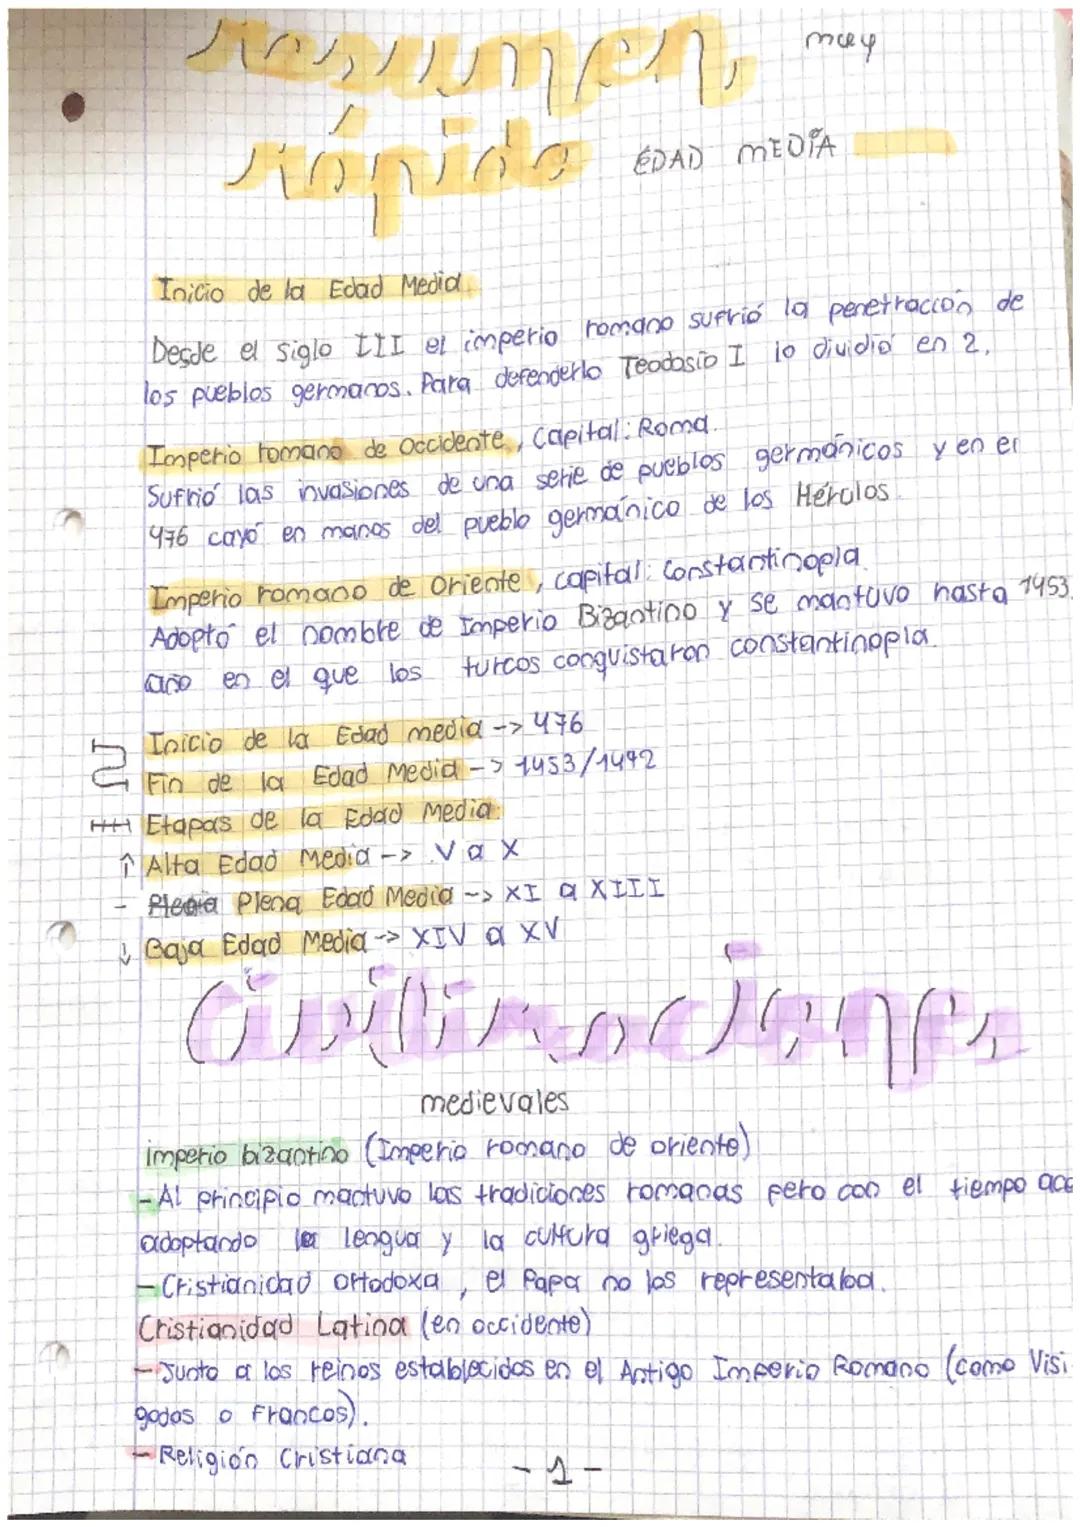 resumen muy
rápido EDAD MEDIA
Inicio de la Edad Media
Desde el siglo III el imperio romano sufrió la penetración de
los pueblos germanos. Para defenderlo Teodosio I lo dividió en 2.
Imperio romano de Occidente, Capital: Roma.
Sufrió las invasiones de una serie de pueblos germánicos y en el
476 cayó en manos del pueblo germánico de los Hérulos.
Imperio romano de Oriente, capital: Constantinopla.
Adoptó el nombre de Imperio Bizantino y se mantuvo hasta 1453,
año en el que los turcos conquistaron constantinopla.
Inicio de la Edad media -> 476
Fin de la Edad Media -> 1453/1492
Etapas de la Edad Media:
↑ Alta Edad Media -> V a X
- Plena Edad Media -> XI a XIII
↓ Baja Edad Media -> XIV a XV
Civilizaciones
medievales
imperio bizantino (Imperio romano de oriente)
- Al principio mantuvo las tradiciones romanas pero con el tiempo aca
adoptando la lengua y la cultura griega.
- Cristianidad ortodoxa, el Papa no los representaba.
Cristianidad Latina (en occidente)
- Junto a los reinos establecidos en el Antigo Imperio Romano (como Visi
godos o Francos).
- Religión Cristiana
- 1 -